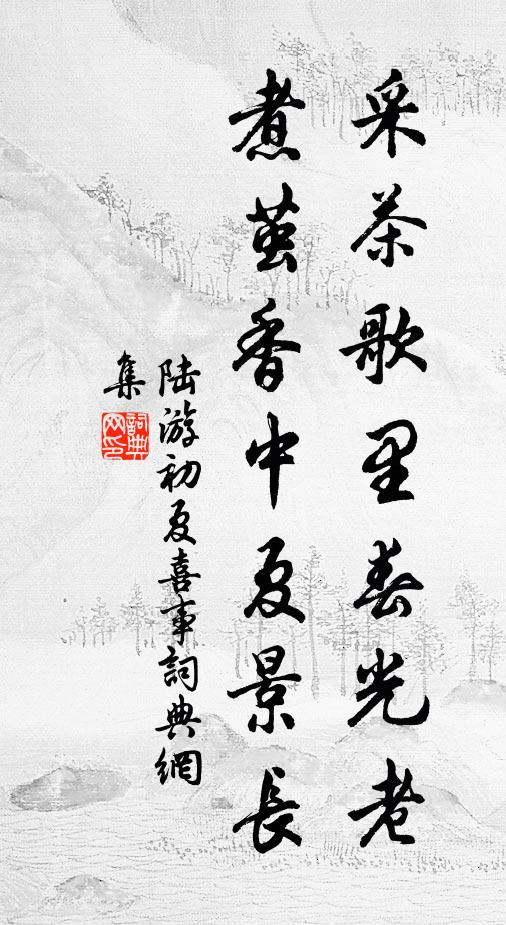 采茶歌里春光老
煮茧香中夏景長
陆游初夏喜事詞典網
集
詞典网印